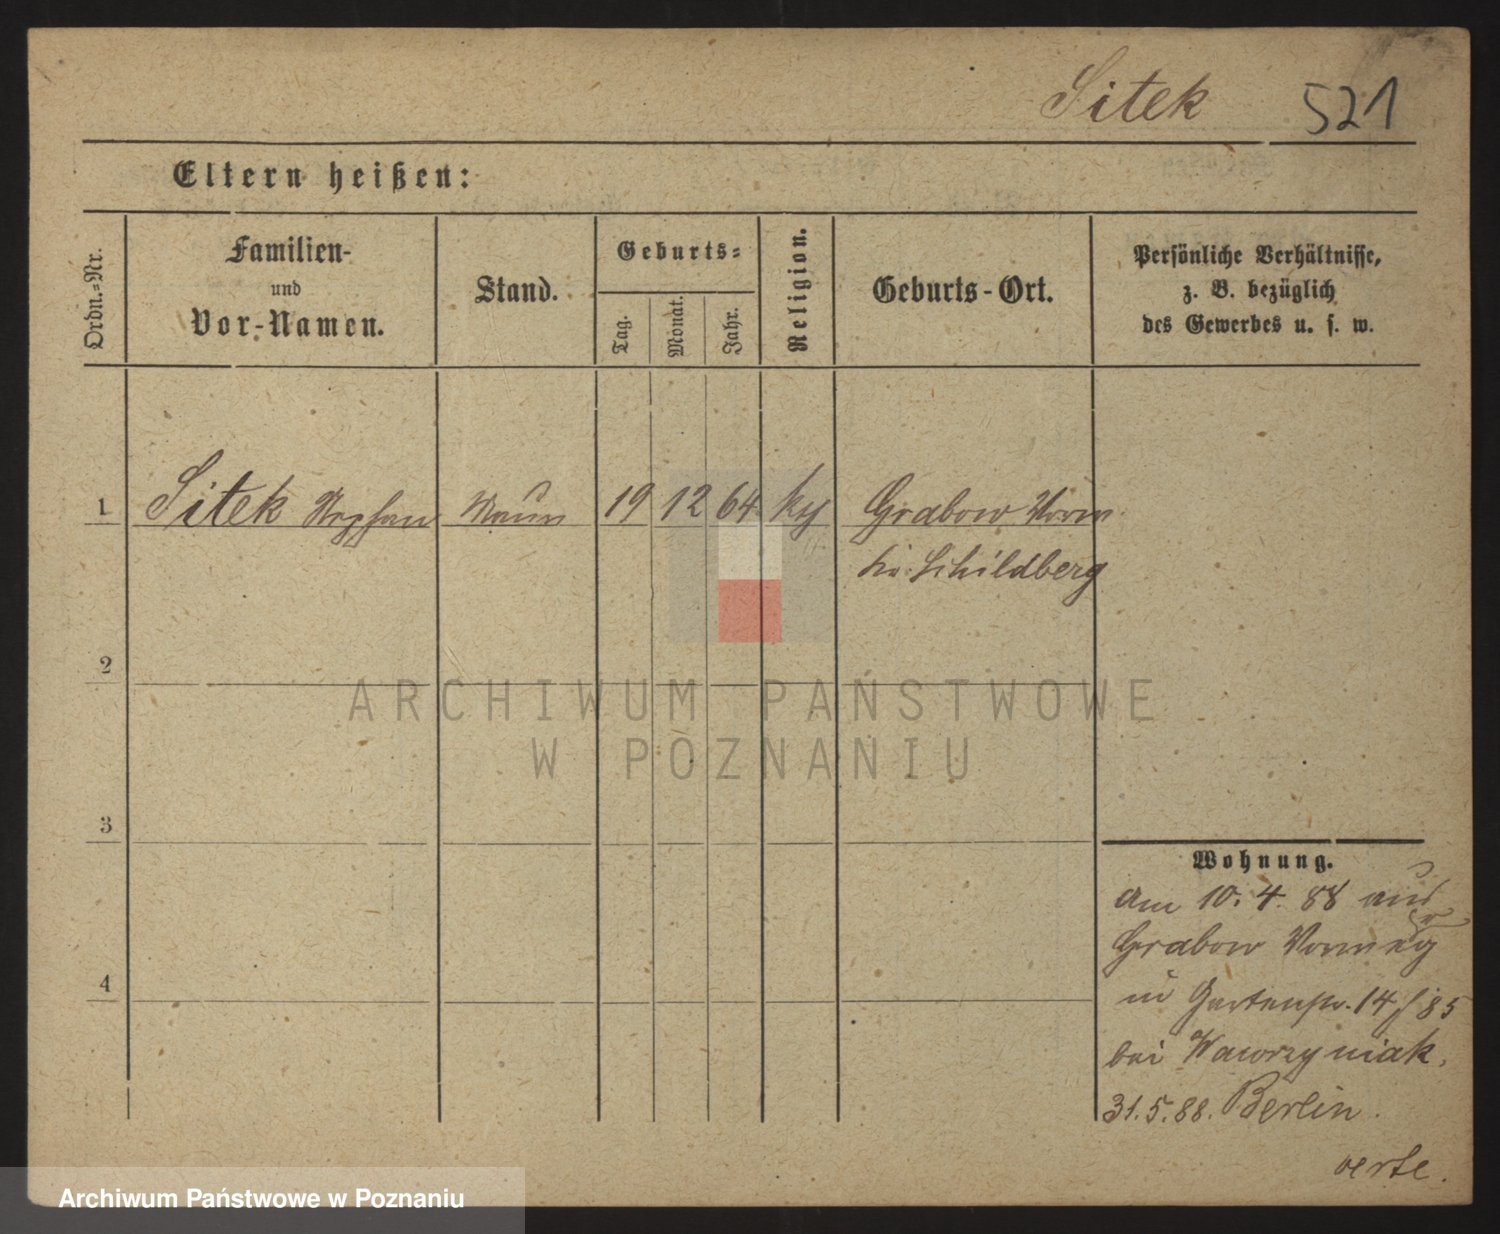 Sitek 521
Eltern heißen:
Ordn.-Nr.
Familien-
und
Vor-Namen.
Stand.
Geburts-
Tag.
Monat.
Jahr.
Religion.
Geburts-Ort.
Persönliche Verhältnisse,
z. B. bezüglich
des Gewerbes u. s. w.
1 Sitek Stephan 19 12 64 Grabow
Schildberg
2
ARCHIWUM PAŃSTWOWE
W POZNANIU
3
Wohnung.
am 10. 4. 88 aus
Grabow
in Gartenstr. 14 85
bei Wawrzyniak.
31.5.88. Berlin.
4
verte.
Archiwum Państwowe w Poznaniu